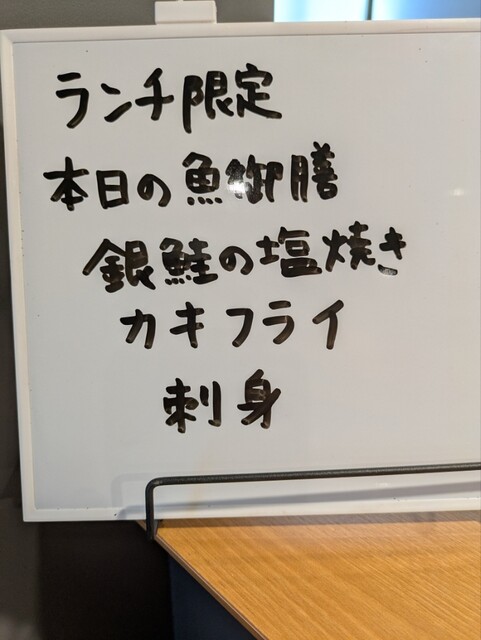 ランチ限定
本日の魚御膳
銀鮭の塩焼き
カキフライ
刺身